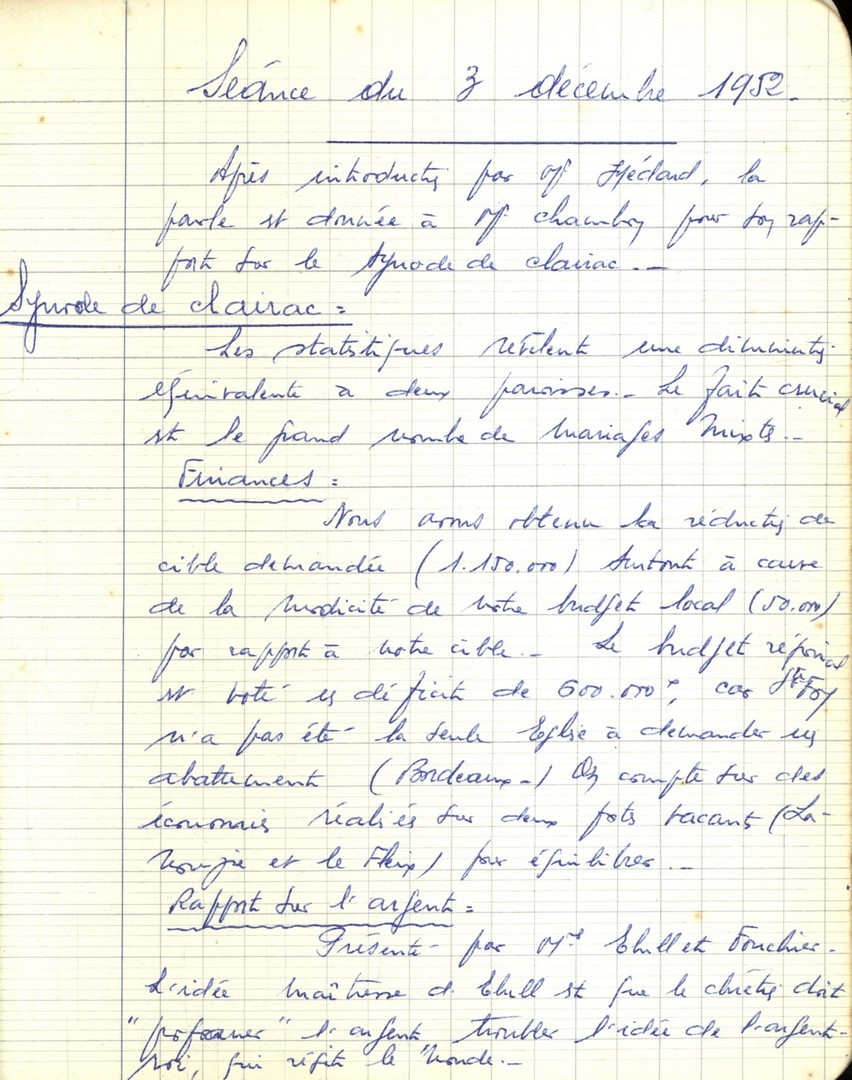 Séance du 3 décembre 1952.
Après introduction par Mr Médard, la
parole est donnée à Mr Chambon pour son rap-
port sur le Synode de Clairac. _
Synode de Clairac =
Les statistiques révèlent une diminution
équivalente à deux paroisses. _ Le fait crucial
est le grand nombre de mariages mixtes. _
Finances =
Nous avons obtenu la réduction de
cible demandée (1.150.000) surtout à cause
de la modicité de notre budget local (50.000)
par rapport à notre cible. _ Le budget régional
est voté en déficit de 600.000 F, car Ste Foy
n'a pas été la seule Eglise à demander un
abattement (Bordeaux _) On compte sur des
économies réalisées sur deux postes vacants (La-
nougie et le Fleix) pour équilibrer. _
Rapport sur l'argent =
Présenté par Mrs Ellul et Fouchier.
L'idée maîtresse d'Ellul est que le chrétien doit
"profaner" l'argent, troubler l'idée de l'argent-
roi, qui régit le monde. _